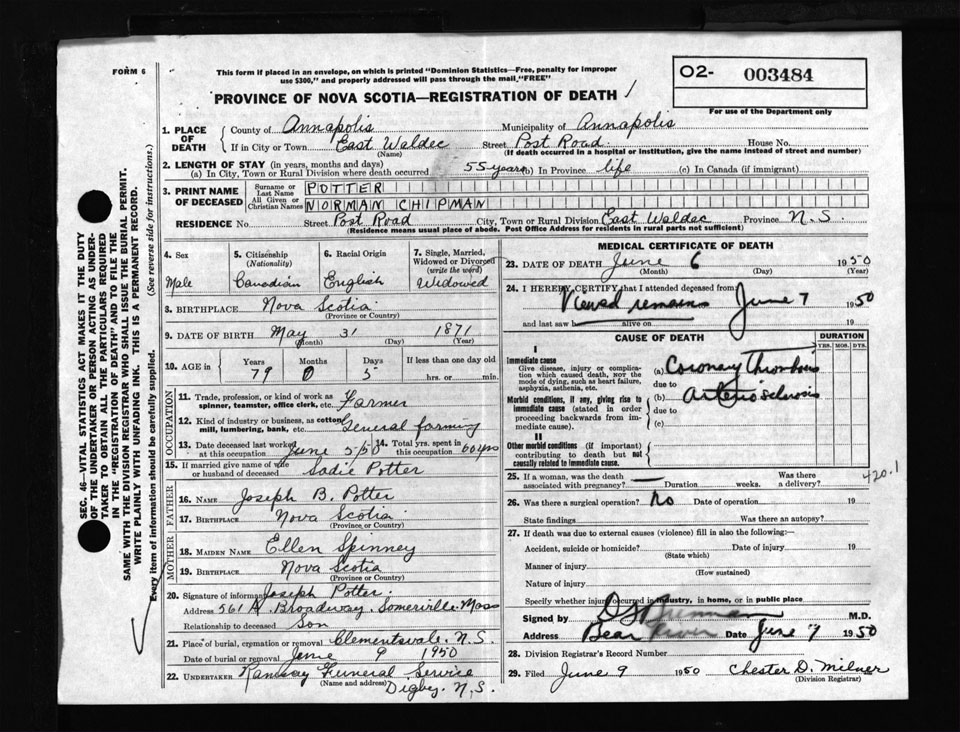 FORM 6
This form if placed in an envelope, on which is printed "Dominion Statistics—Free, penalty for improper
use $300," and properly addressed will pass through the mail, "FREE"
O2- 003484
For use of the Department only
PROVINCE OF NOVA SCOTIA—REGISTRATION OF DEATH
1. PLACE OF DEATH { County of Annapolis Municipality of Annapolis
If in City or Town East Waldec Street Post Road House No.
(Name) (If death occurred in a hospital or institution, give the name instead of street and number)
2. LENGTH OF STAY (in years, months and days)
(a) In City, Town or Rural Division where death occurred 55 years (b) In Province life (c) In Canada (if immigrant)
3. PRINT NAME OF DECEASED { Surname or Last Name POTTER
All Given or Christian Names NORMAN CHIPMAN
RESIDENCE No. Street Post Road City, Town or Rural Division East Waldec Province N.S
(Residence means usual place of abode. Post Office Address for residents in rural parts not sufficient)
4. Sex Male
5. Citizenship (Nationality) Canadian
6. Racial Origin English
7. Single, Married, Widowed or Divorced (write the word) Widowed
8. BIRTHPLACE Nova Scotia
(Province or Country)
9. DATE OF BIRTH May 31 1871
(Month) (Day) (Year)
10. AGE in { Years 79 Months 0 Days 5 If less than one day old
hrs. or min.
OCCUPATION
11. Trade, profession, or kind of work as spinner, teamster, office clerk, etc. Farmer
12. Kind of industry or business, as cotton mill, lumbering, bank, etc. General farming
13. Date deceased last worked at this occupation June 5/50 14. Total yrs. spent in this occupation 60 yrs
15. If married give name of wife or husband of deceased Sadie Potter
FATHER
16. NAME Joseph B. Potter
17. BIRTHPLACE Nova Scotia
(Province or Country)
MOTHER
18. MAIDEN NAME Ellen Spinney
19. BIRTHPLACE Nova Scotia
(Province or Country)
20. Signature of informant Joseph Potter.
Address 561 A. Broadway. Somerville. Mass
Relationship to deceased Son
21. Place of burial, cremation or removal Clementsvale. N.S.
Date of burial or removal June 9 1950
22. UNDERTAKER Ramsay Funeral Service
(Name and address) Digby, N.S.
MEDICAL CERTIFICATE OF DEATH
23. DATE OF DEATH June 6 1950
(Month) (Day) (Year)
24. I HEREBY CERTIFY that I attended deceased from
Viewed remains June 7 1950
and last saw alive on 19
CAUSE OF DEATH
DURATION
YRS. MOS. DYS.
I
Immediate cause
Give disease, injury or complication which caused death, not the mode of dying, such as heart failure, asphyxia, asthenia, etc.
(a) Coronary Thrombosis
due to
Morbid conditions, if any, giving rise to immediate cause (stated in order proceeding backwards from immediate cause).
(b) Arteriosclerosis
due to
(c)
II
Other morbid conditions (if important) contributing to death but not causally related to immediate cause.
25. If a woman, was the death associated with pregnancy? — Duration weeks. Was there a delivery?
420.1
26. Was there a surgical operation? No Date of operation 19
State findings Was there an autopsy?
27. If death was due to external causes (violence) fill in also the following:—
Accident, suicide or homicide? Date of injury 19
(State which)
Manner of injury
(How sustained)
Nature of injury
Specify whether injury occurred in industry, in home, or in public place
Signed by M.D.
Address Bear River Date June 7 1950
28. Division Registrar's Record Number
29. Filed June 9 1950 Chester D. Milner
(Division Registrar)
SEC. 46—VITAL STATISTICS ACT MAKES IT THE DUTY
OF THE UNDERTAKER OR PERSON ACTING AS UNDER-
TAKER TO OBTAIN ALL THE PARTICULARS REQUIRED
IN THE "REGISTRATION OF DEATH" AND TO FILE THE
SAME WITH THE DIVISION REGISTRAR WHO SHALL ISSUE THE BURIAL PERMIT.
WRITE PLAINLY WITH UNFADING INK. THIS IS A PERMANENT RECORD.
Every item of information should be carefully supplied. (See reverse side for instructions.)